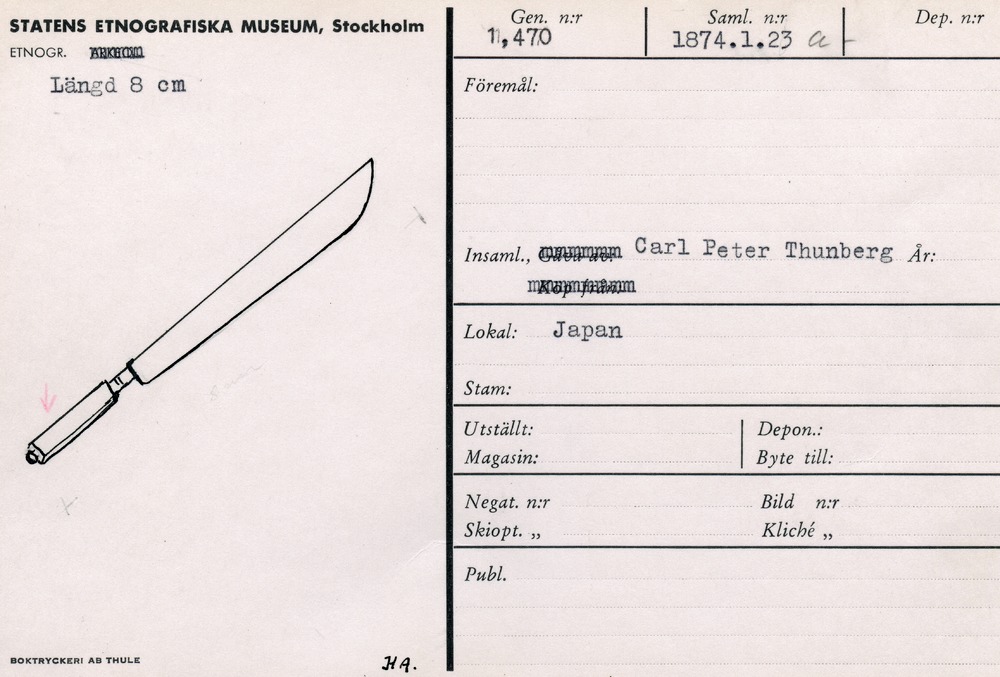 STATENS ETNOGRAFISKA MUSEUM, Stockholm
ETNOGR.
Längd 8 cm
BOKTRYCKERI AB THULE
HA.
Gen. n:r
11,470
Saml. n:r
1874.1.23 a
Dep. n:r
Föremål:
Insaml., Gåva av: Carl Peter Thunberg År:
Köp från:
Lokal: Japan
Stam:
Utställt:
Depon.:
Magasin:
Byte till:
Negat. n:r
Bild n:r
Skiopt. „
Kliché „
Publ.